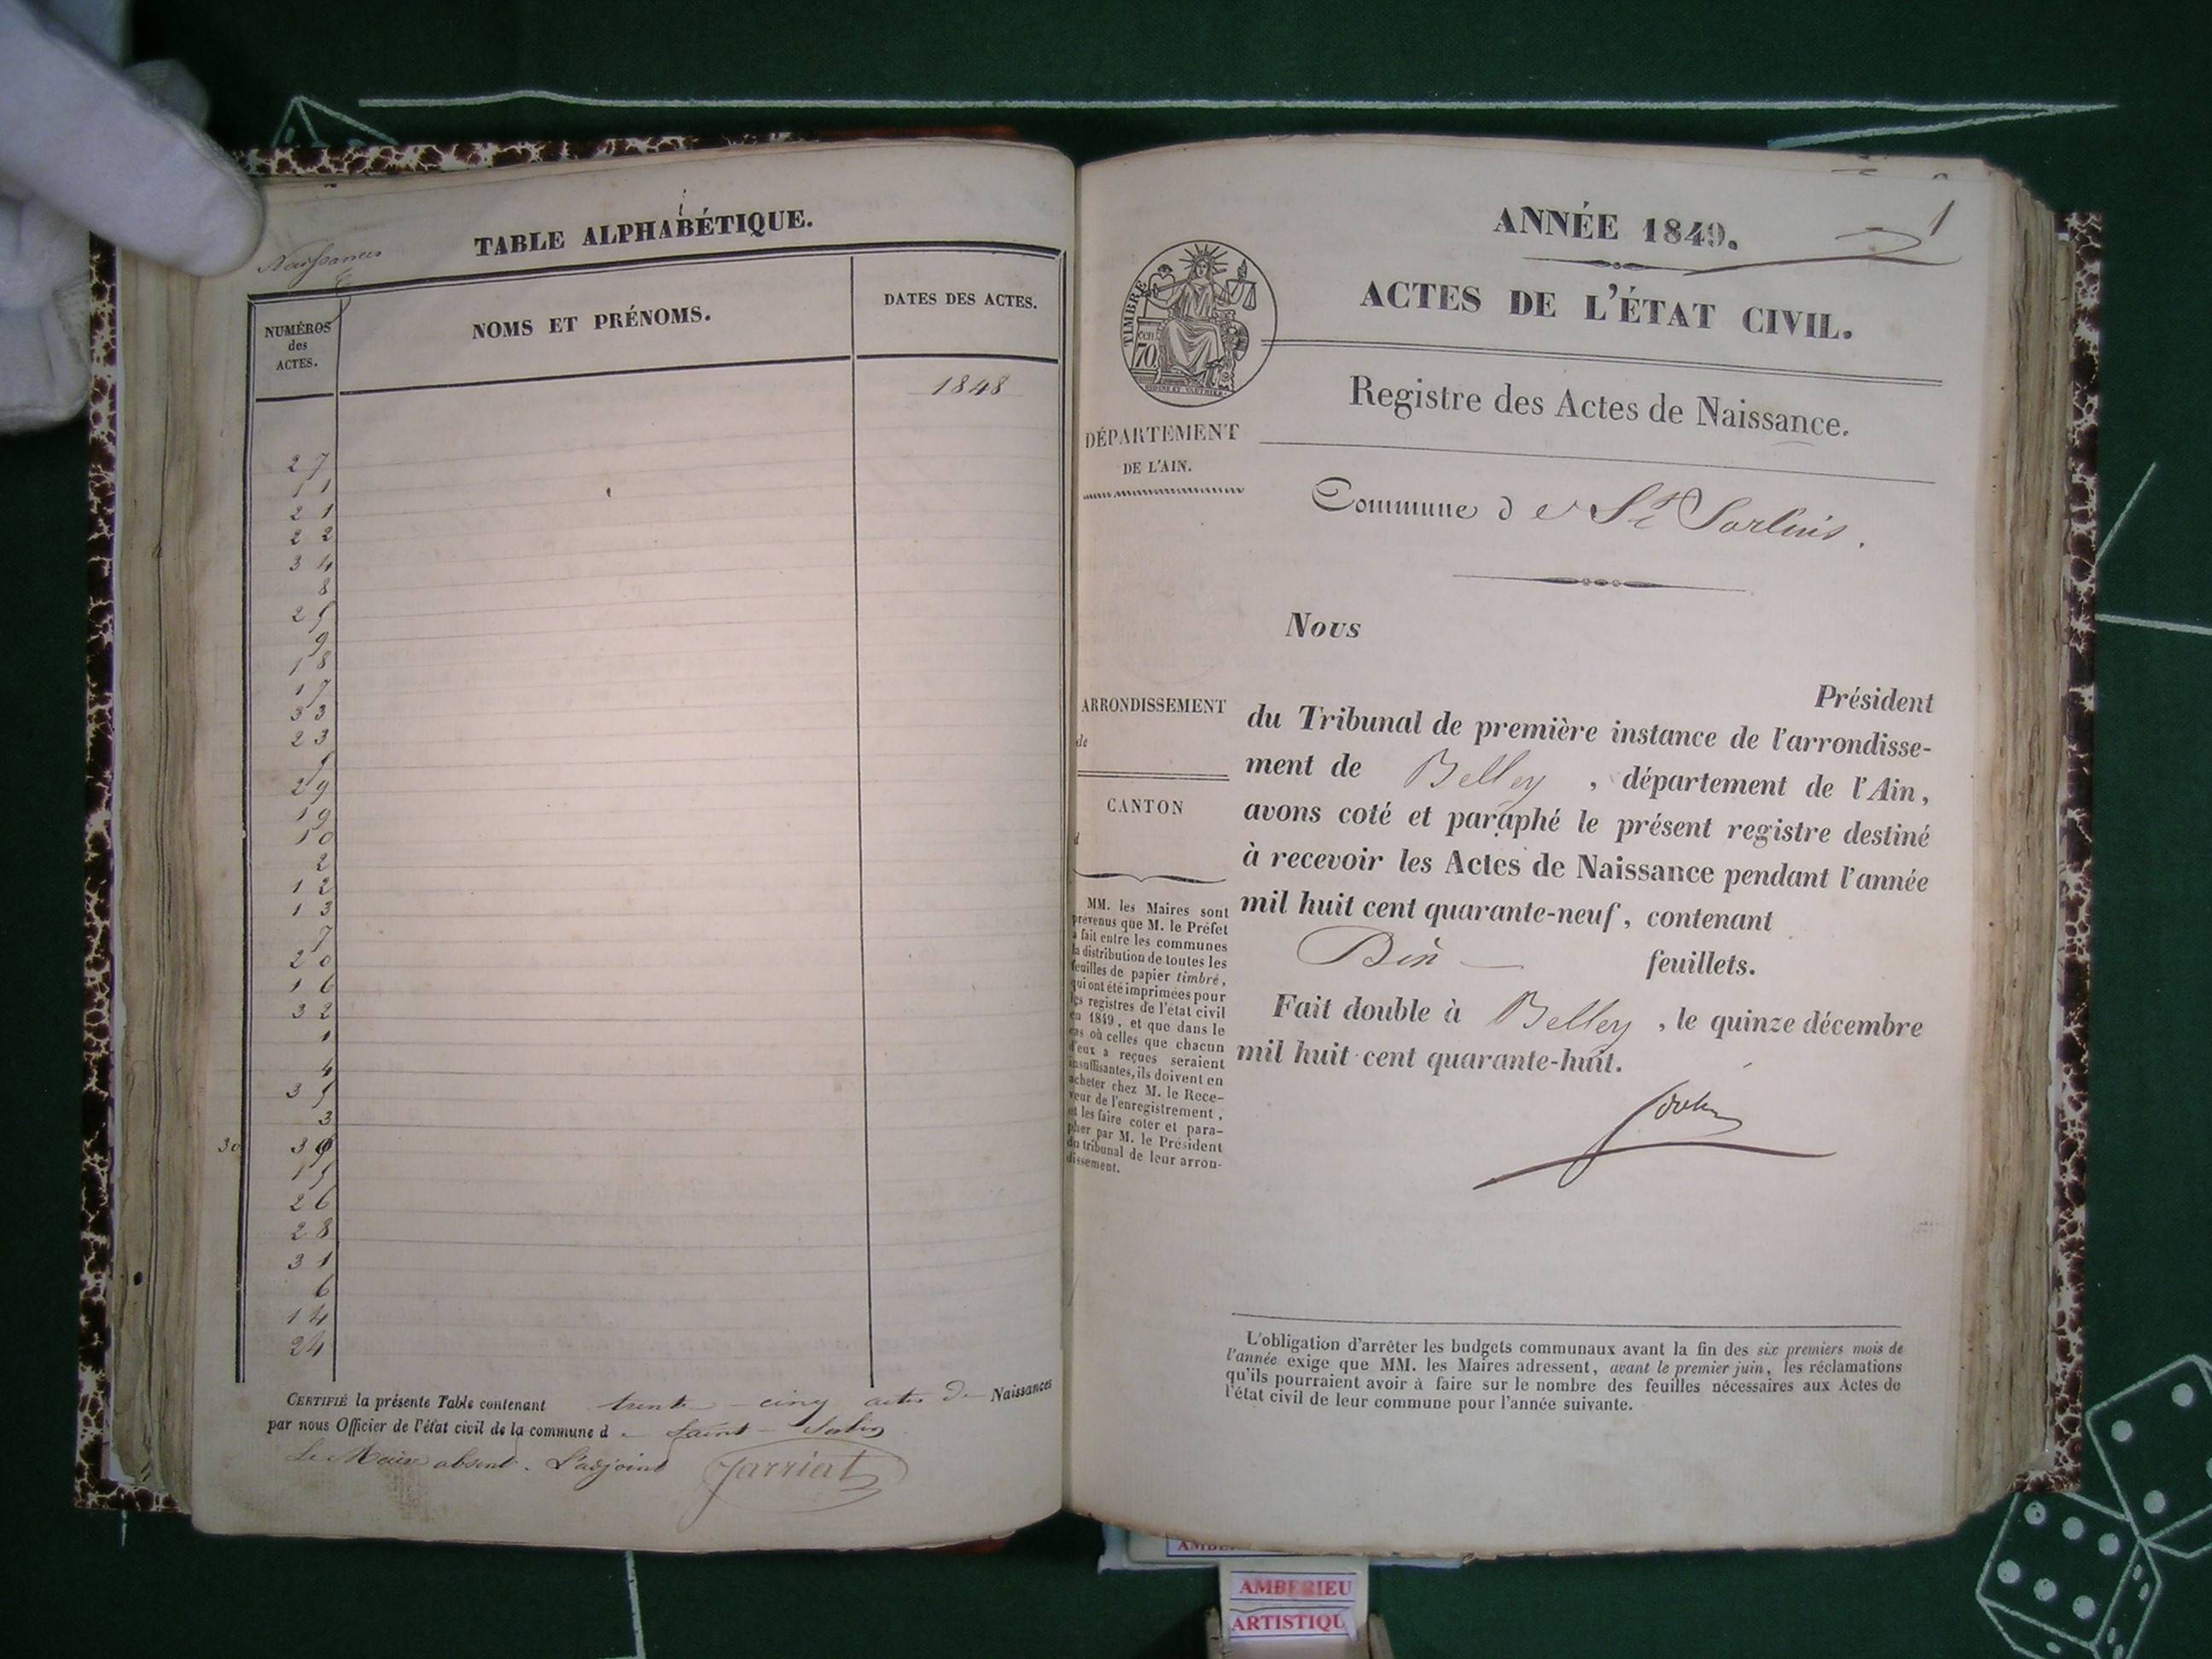 Naissances
TABLE ALPHABÉTIQUE.
NUMÉROS
des
ACTES.
NOMS ET PRÉNOMS.
DATES DES ACTES.
1848
27
11
21
22
34
8
25
9
18
17
33
23
5
29
19
10
2
12
13
7
20
16
32
1
4
35
3
30
15
26
28
31
6
14
24
CERTIFIÉ la présente Table contenant trente-cinq actes de Naissances
par nous Officier de l'état civil de la commune de Saint-Sorlin
Le Maire absent. L'adjoint Jarriat
1
ANNÉE 1849.
ACTES DE L'ÉTAT CIVIL.
TIMBRE
70
Registre des Actes de Naissance.
DÉPARTEMENT
DE L'AIN.
Commune de St Sorlin.
Nous
Président
ARRONDISSEMENT
de
CANTON
d
du Tribunal de première instance de l'arrondisse-
ment de Belley, département de l'Ain,
avons coté et paraphé le présent registre destiné
à recevoir les Actes de Naissance pendant l'année
mil huit cent quarante-neuf, contenant
feuillets.
Fait double à Belley, le quinze décembre
mil huit cent quarante-huit.
MM. les Maires sont
prévenus que M. le Préfet
a fait entre les communes
la distribution de toutes les
feuilles de papier timbré,
qui ont été imprimées pour
les registres de l'état civil
en 1849, et que dans le
cas où celles que chacun
d'eux a reçues seraient
insuffisantes, ils doivent en
acheter chez M. le Rece-
veur de l'enregistrement,
et les faire coter et para-
pher par M. le Président
du tribunal de leur arron-
dissement.
L'obligation d'arrêter les budgets communaux avant la fin des six premiers mois de
l'année exige que MM. les Maires adressent, avant le premier juin, les réclamations
qu'ils pourraient avoir à faire sur le nombre des feuilles nécessaires aux Actes de
l'état civil de leur commune pour l'année suivante.
AMBERIEU
ARTISTIQU